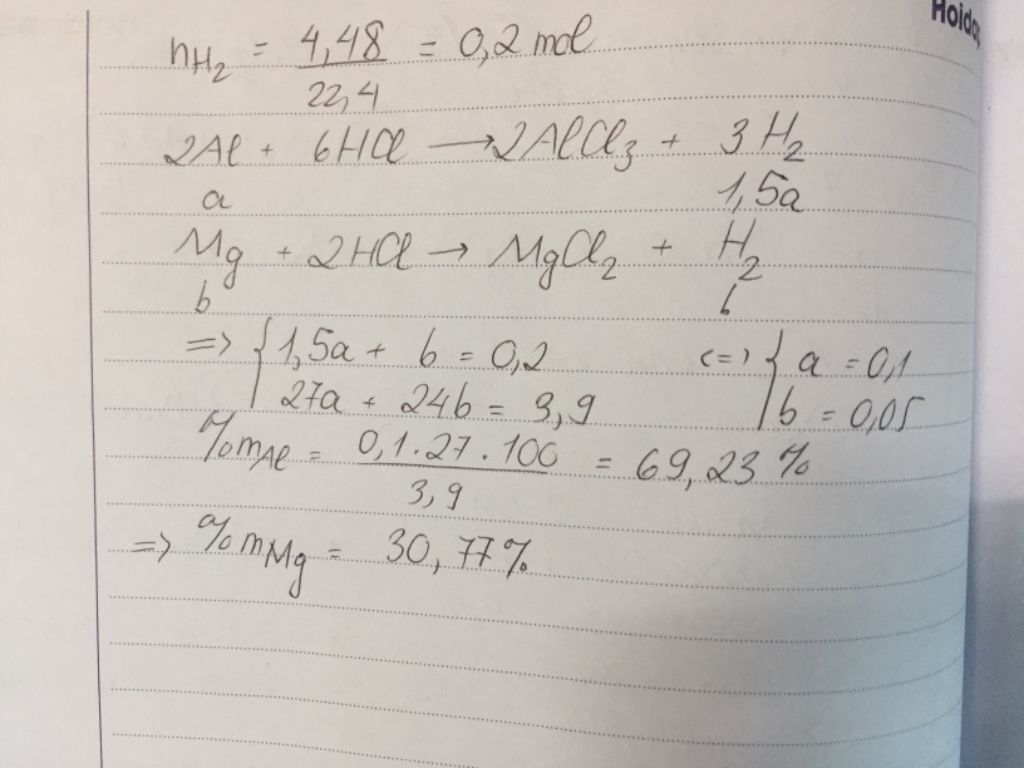 Hoida
nH₂ = 4,48 / 22,4 = 0,2 mol
2Al + 6HCl → 2AlCl₃ + 3H₂
a 1,5a
Mg + 2HCl → MgCl₂ + H₂
b b
=> { 1,5a + b = 0,2 <=> { a = 0,1
27a + 24b = 3,9 b = 0,05
%mAl = 0,1.27.100 / 3,9 = 69,23%
=> %mMg = 30,77%